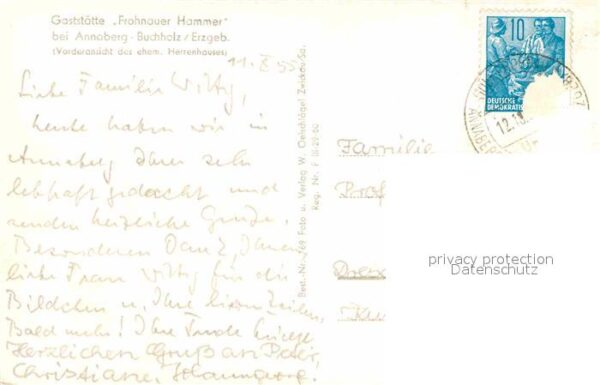 Gaststätte „Frohnauer Hammer"
bei Annaberg - Buchholz / Erzgeb.
(Vorderansicht des ehem. Herrenhauses)
Liebe Familie
heute haben wir in
Annaberg Ihrer sehr
lebhaft gedacht und
senden herzliche Grüße.
Besonderen Dank, Ihnen
liebe Frau für die
Bildchen u. Ihre lieben Zeilen,
Bald mehr! Ihre
Herzlichen Gruß an Peter,
Christiane,
Best.-Nr. /69 Foto u. Verlag W. Oelschlägel Zwickau/Sa.
Reg. Nr. P III-29-60
10
DEUTSCHE
DEMOKRATIS
ANNABE
12.
Familie
Prof
privacy protection
Datenschutz